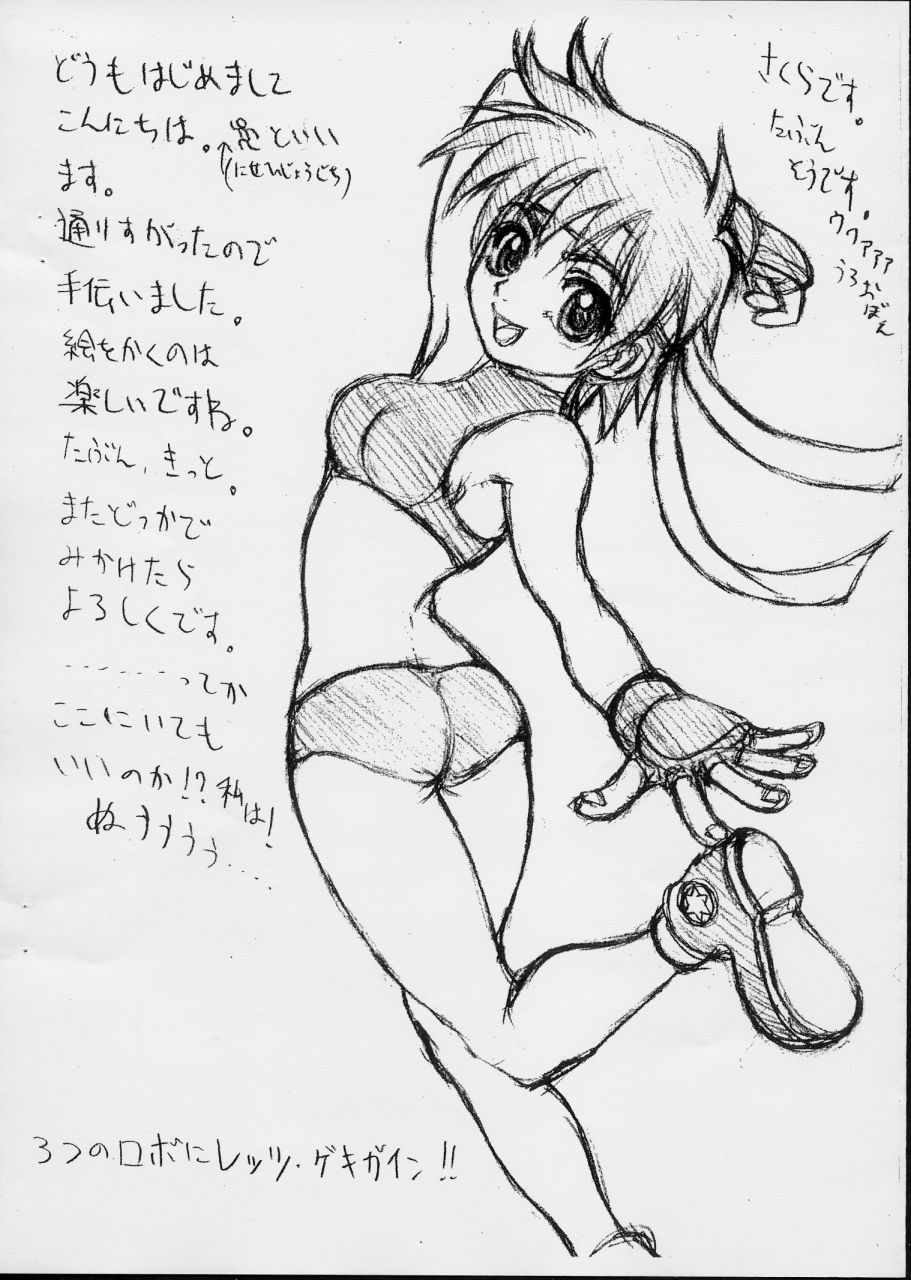 どうもはじめまして
こんにちは。といい
(にせんじょうじち)
ます。
通りすがったので
手伝いました。
絵をかくのは
楽しいですね。
たぶん、きっと。
またどっかで
みかけたら
よろしくです。
………ってか
ここにいても
いいのか!?私は!
ぬぅぅぅぅ….
さくらです。
たぶん
そうです。
ウヴァァァ
うろおぼえ
3つのロボにレッツ・ゲキガイン!!